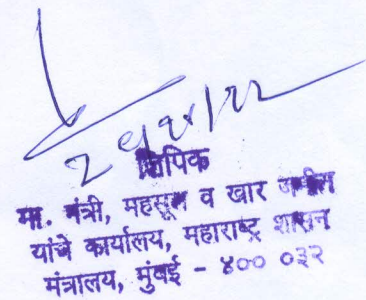 लिपिक
मा. मंत्री, महसूल व खार जमीन
यांचे कार्यालय, महाराष्ट्र शासन
मंत्रालय, मुंबई - ४०० ०३२